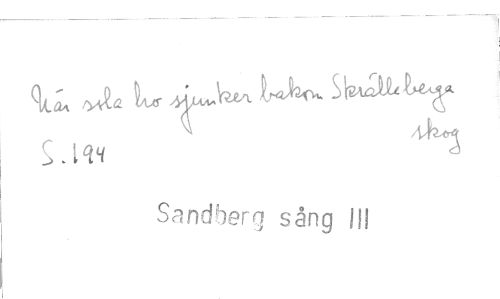 När sola ho sjunker bakom Skrälleberga
skog
S. 194
Sandberg sång III